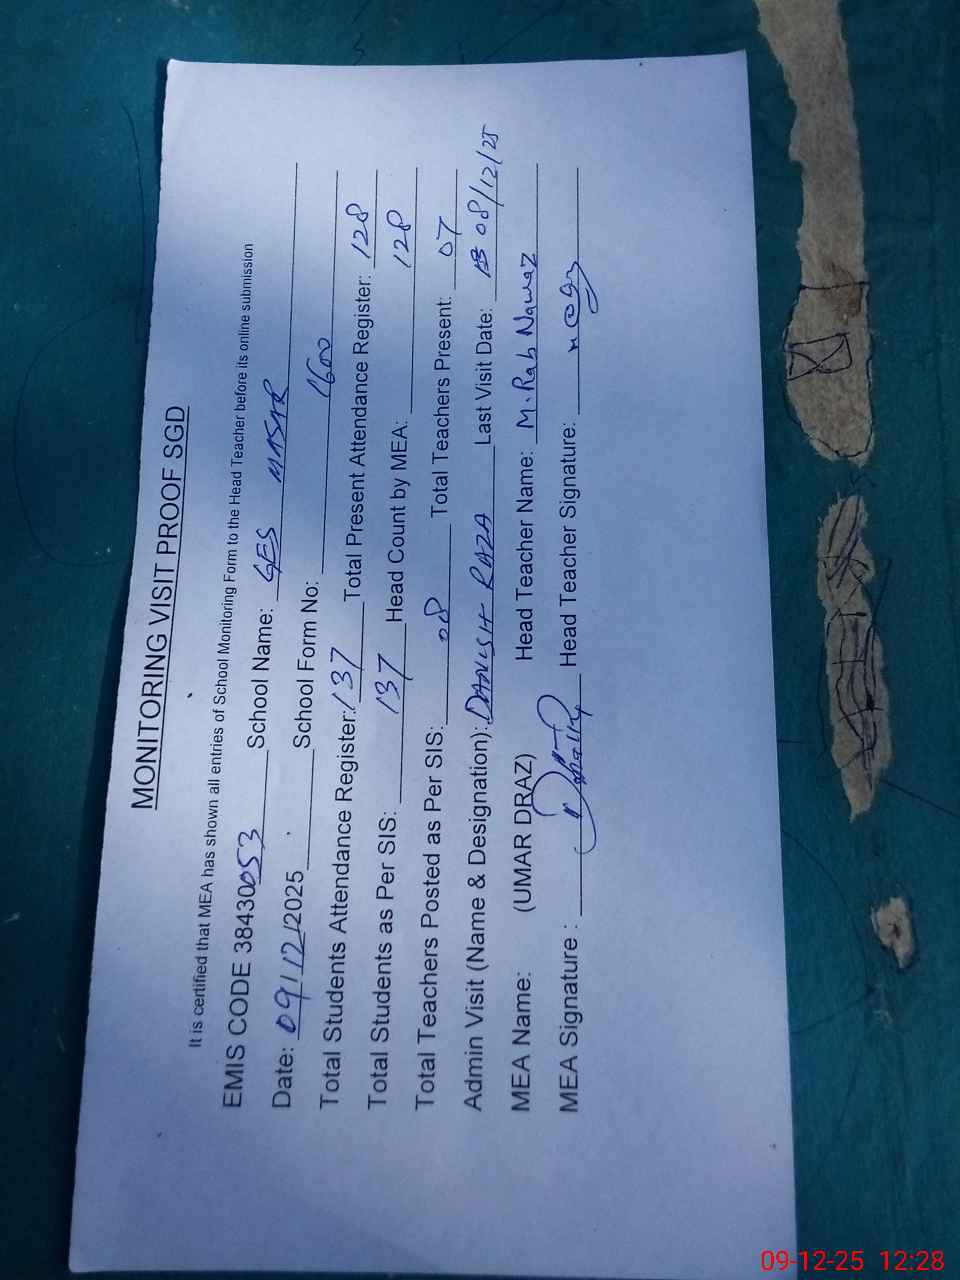 MONITORING VISIT PROOF SGD
It is certified that MEA has shown all entries of School Monitoring Form to the Head Teacher before its online submission
EMIS CODE 38430053 School Name: GES MASAR
Date: 09/12/2025 School Form No: 1600
Total Students Attendance Register: 137 Total Present Attendance Register: 128
Total Students as Per SIS: 137 Head Count by MEA: 128
Total Teachers Posted as Per SIS: 08 Total Teachers Present: 07
Admin Visit (Name & Designation): DANISH RAZA Last Visit Date: 08/12/25
MEA Name: (UMAR DRAZ) Head Teacher Name: M. Rab Nawaz
MEA Signature : Head Teacher Signature:
09-12-25 12:28